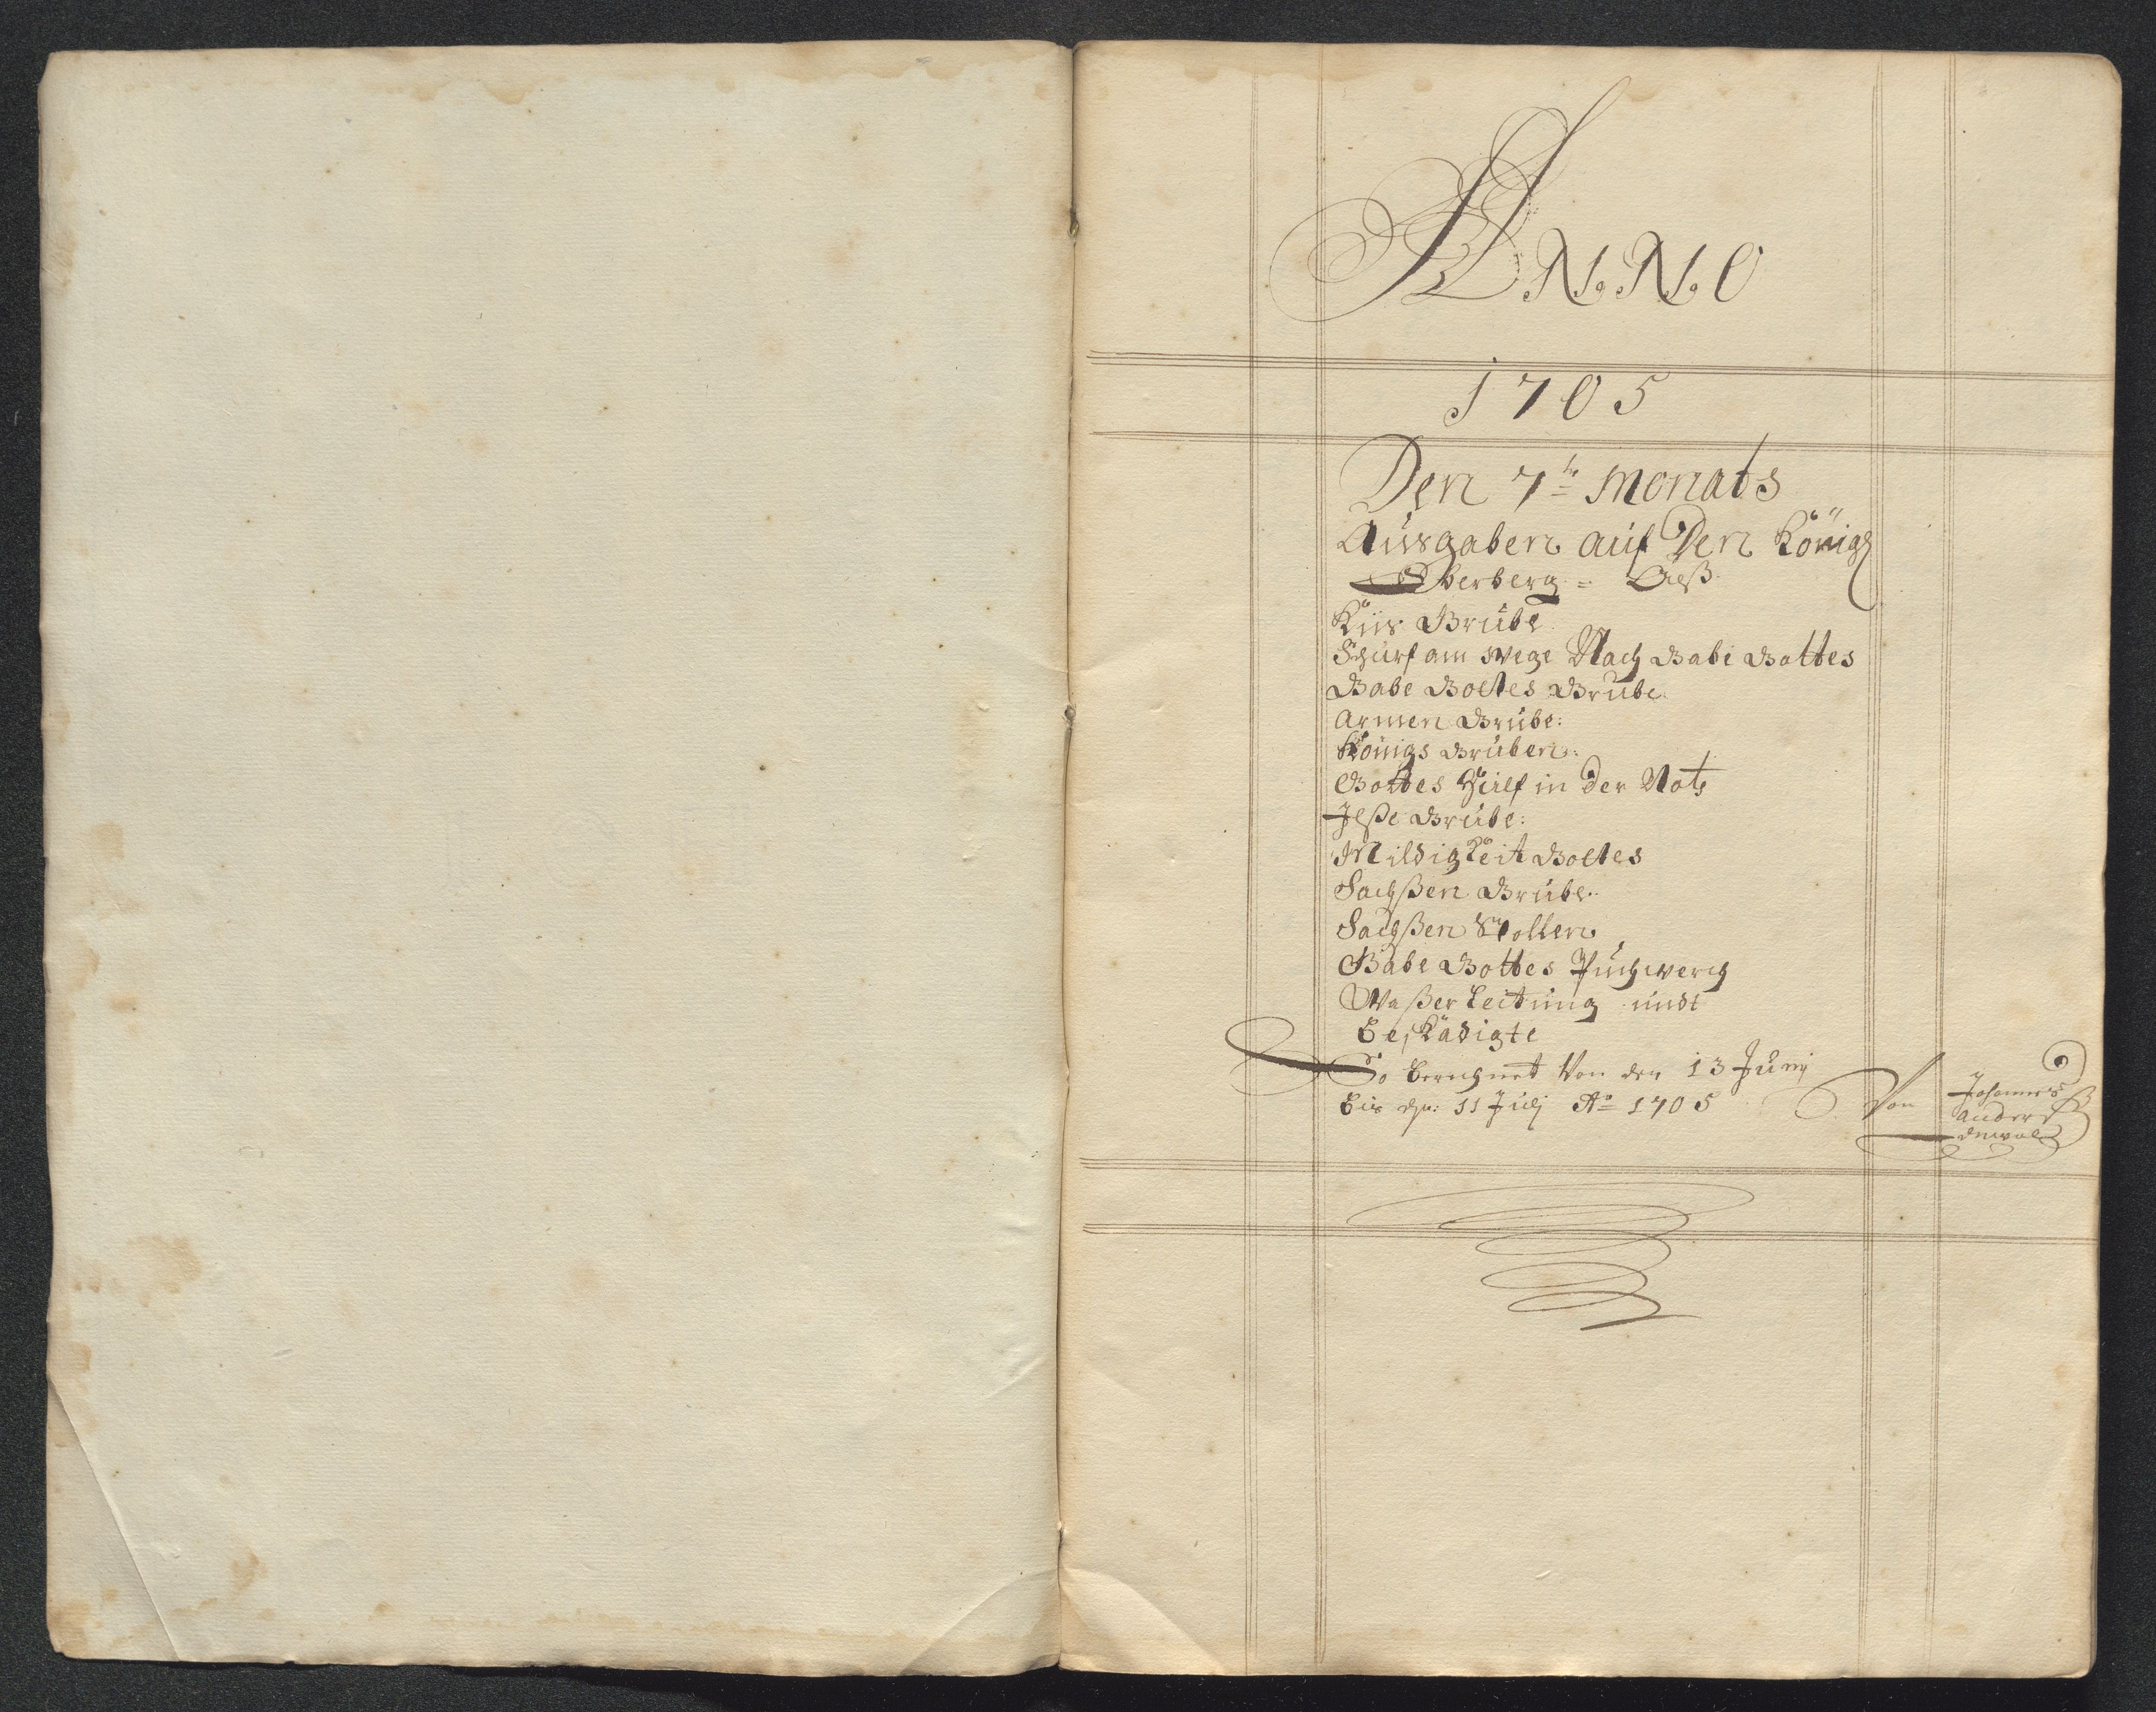 ANNO
1705
Den 7te Monats
Ausgaben auf Den König
Oberberg =
Kiis Grube
Schurf am Wege Nach Gabe Gottes
Gabe Gottes Grube
Armen Grube:
Königs Gruben:
Gottes Hülf in der Noht
Grube:
Mildigkeit Gottes
Sachßen Grube.
Sachßen Stollen
Gabe Gottes Puchwerch
Waßer Leitung undt
Beskädigte
So berechnet Von den 13 Junij
bis den: 11 Julij Ao 1705
Von Johannes
Anders